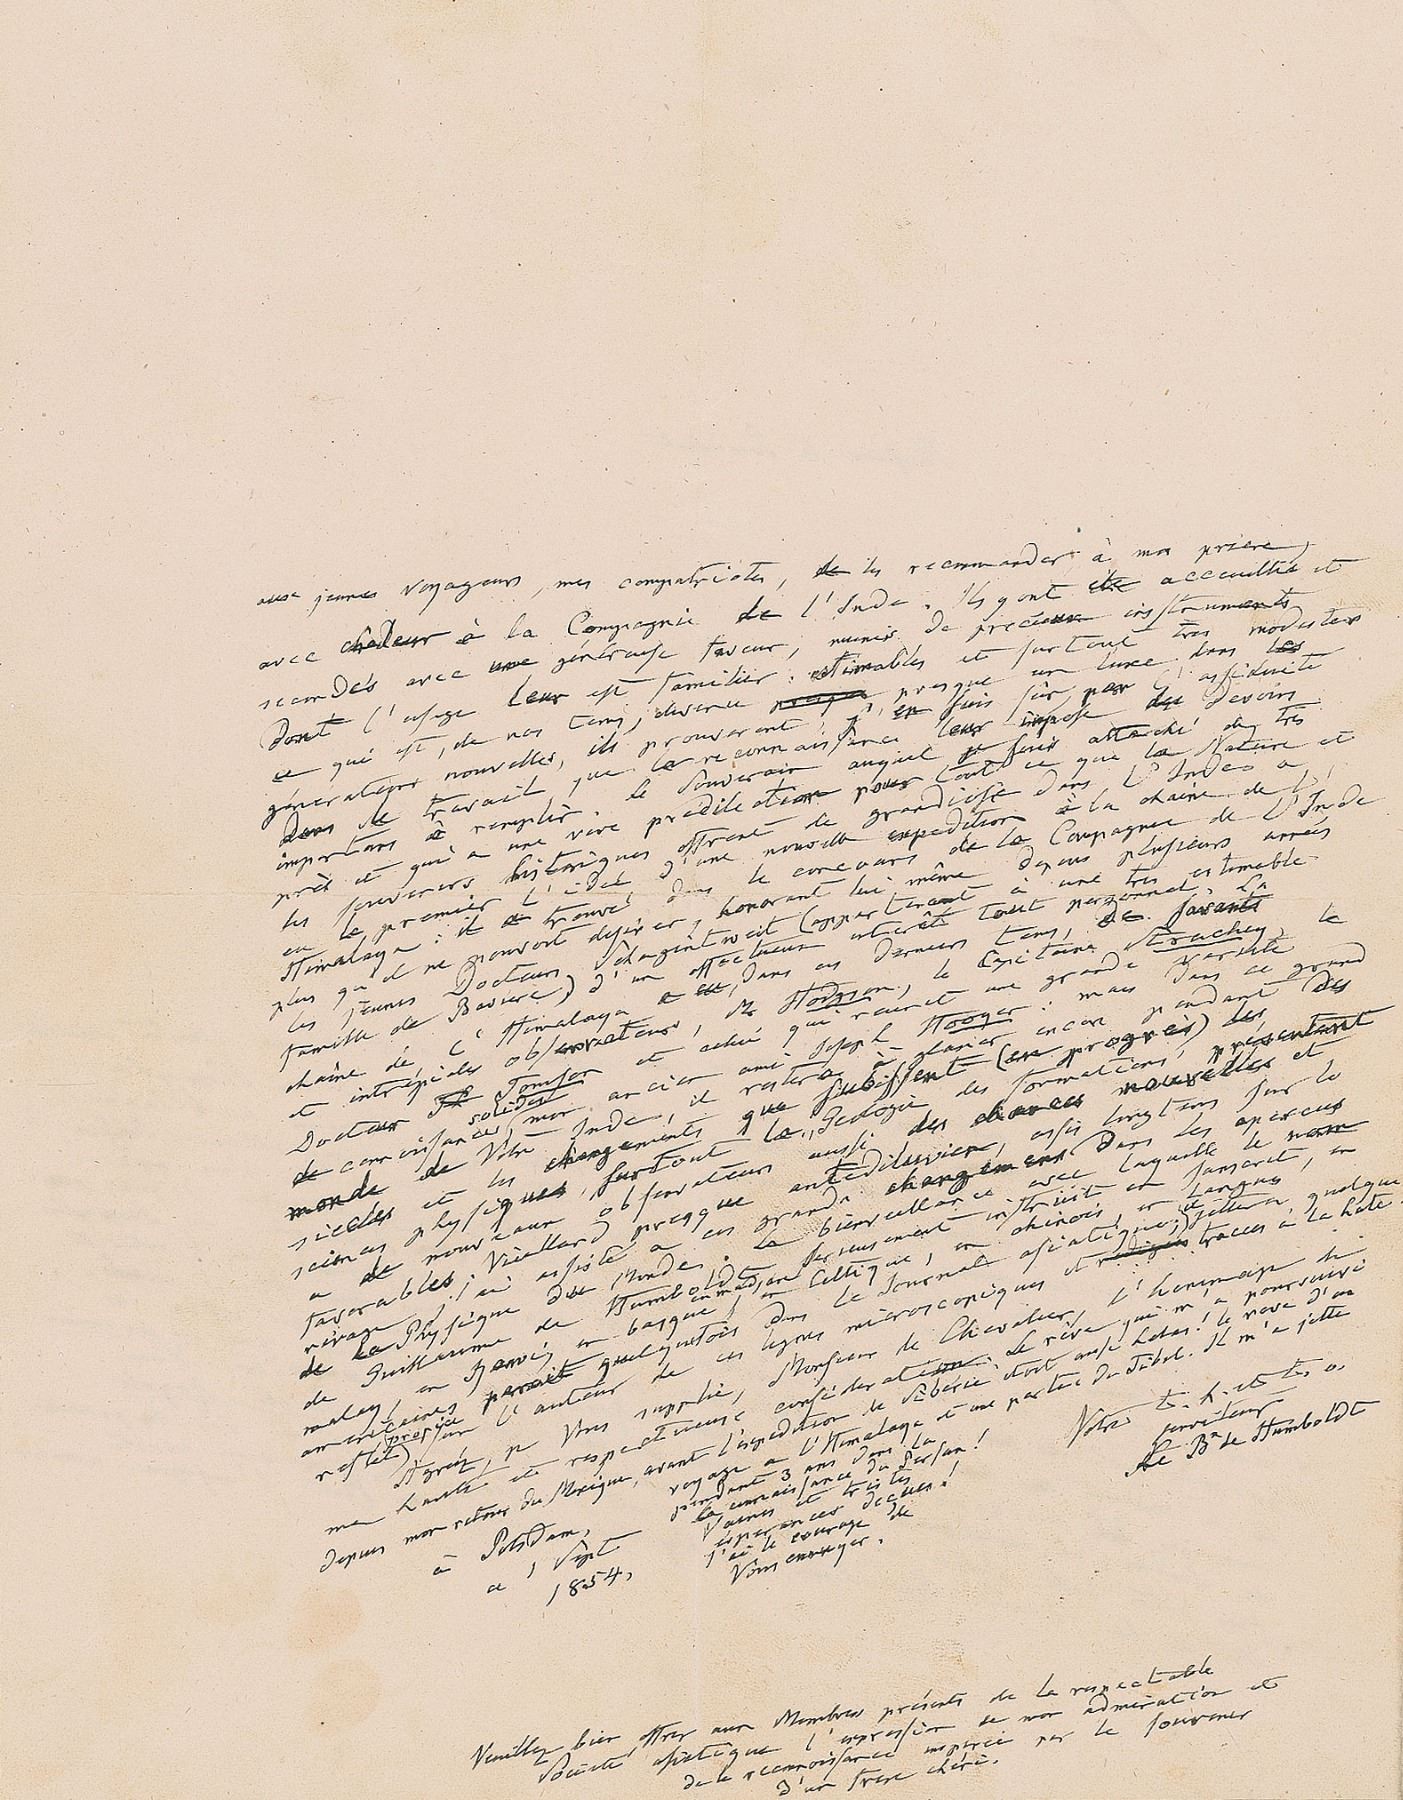 aux jeunes voyageurs, mes compatriotes, de les recommander à ma prière,
avec chaleur à la Compagnie de l'Inde. Ils y ont été accueillis et
secondés avec une généreuse faveur, munis de précieux instruments
dont l'usage leur est familier: estimables et surtout très modestes
ce qui est, de nos tems, devenu presque un luxe dans les
générations nouvelles, ils prouveront, j'en suis sûr, par l'assiduité
dans le travail que la reconnaissance leur impose des devoirs
importans à remplir. Le Souverain auquel je suis attaché de très
près et qui a une vive prédilection pour tout ce que la Nature et
les souvenirs historiques offrent de grandiose dans l'Inde a
eu le premier l'idée d'une nouvelle expédition à la chaîne de l'
Himalaya: il a trouvé dans le concours de la Compagnie de l'Inde
plus qu'il ne pouvait désirer, honorant lui même depuis plusieurs années
les jeunes Docteurs Schlagintweit (appartenant à une très estimable
famille de Bavière) d'un affectueux intérêt tout personnel. La
chaîne de l'Himalaya a eu, dans ces derniers tems, de savants
et intrépides observateurs, Mr Hodgson, le Capitaine Strachey, le
Docteur Thomson et celui qui réunit une grande variété
de connaissances solides, mon ancien ami Joseph Hooger: mais dans ce grand
monde de Votre Inde, il restera à glaner encor pendant des
siècles et les changements que subissent (en progrès) les
sciences physiques, surtout la Géologie des formations, présentent
à de nouveaux observateurs aussi des chances nouvelles et
favorables. Vieillard presque antédiluvien, assis longtems sur le
rivage j'ai assisté à ces grands changemens dans les aperçus
de la Physique du Monde. La bienveillance avec laquelle le nom
de Guillaume de Humboldt sérieusement instruit en sanscrit, en
malay, en kawi, en basque, en celtique, en chinois, en langues
américaines paroit quelquefois dans le Journal asiatique, jettera quelque
reflet (propice) sur l'auteur de ces lignes microscopiques et tracées à la hâte.
Agréez, je Vous supplie, Monsieur le Chevalier, l'hommage de
ma haute et respectueuse considération. Le rêve qui m'a poursuivi
depuis mon retour du Mexique, avant l'expédition de Sibérie était aussi hélas! le rêve d'un
voyage à l'Himalaya et une partie du Tübet. Il m'a jetté
pendant 3 ans dans la
connaissance du Persan!
Vaines et tristes
espérances déçues!
J'ai le courage de
Vous envoyer.
à Potsdam,
ce 1 Sept
1854,
Votre t. h. et t. o.
serviteur
Al Bn de Humboldt
Veuillez bien offrir aux Membres présents de la respectable
Société asiatique l'expression de mon admiration et
de la reconnoissance inspirée par le souvenir
d'un frère chéri.